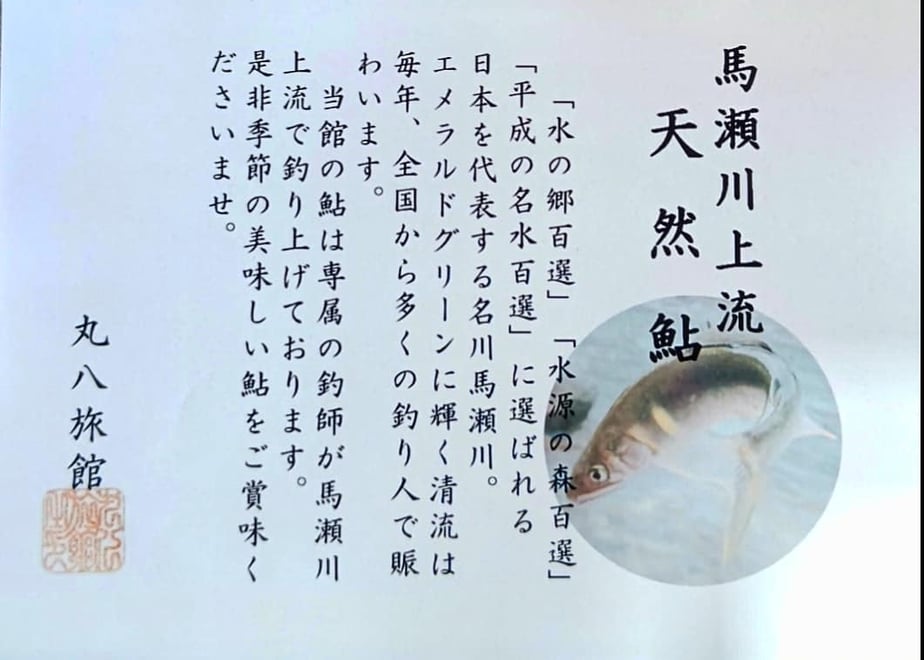 馬瀬川上流
天然鮎
「水の郷百選」「水源の森百選」
「平成の名水百選」に選ばれる
日本を代表する名川馬瀬川。
エメラルドグリーンに輝く清流は
毎年、全国から多くの釣り人で賑
わいます。
当館の鮎は専属の釣師が馬瀬川
上流で釣り上げております。
是非季節の美味しい鮎をご賞味く
ださいませ。
丸八旅館